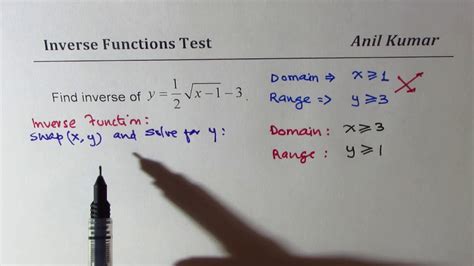 Inverse Functions Test Anil Kumar
Find inverse of y = \frac{1}{2}\sqrt{x-1} - 3.
Domain ⇒ x ≥ 1
Range ⇒ y ≥ 3
Inverse Function:
Swap (x, y) and solve for y:
Domain: x ≥ 3
Range: y ≥ 1